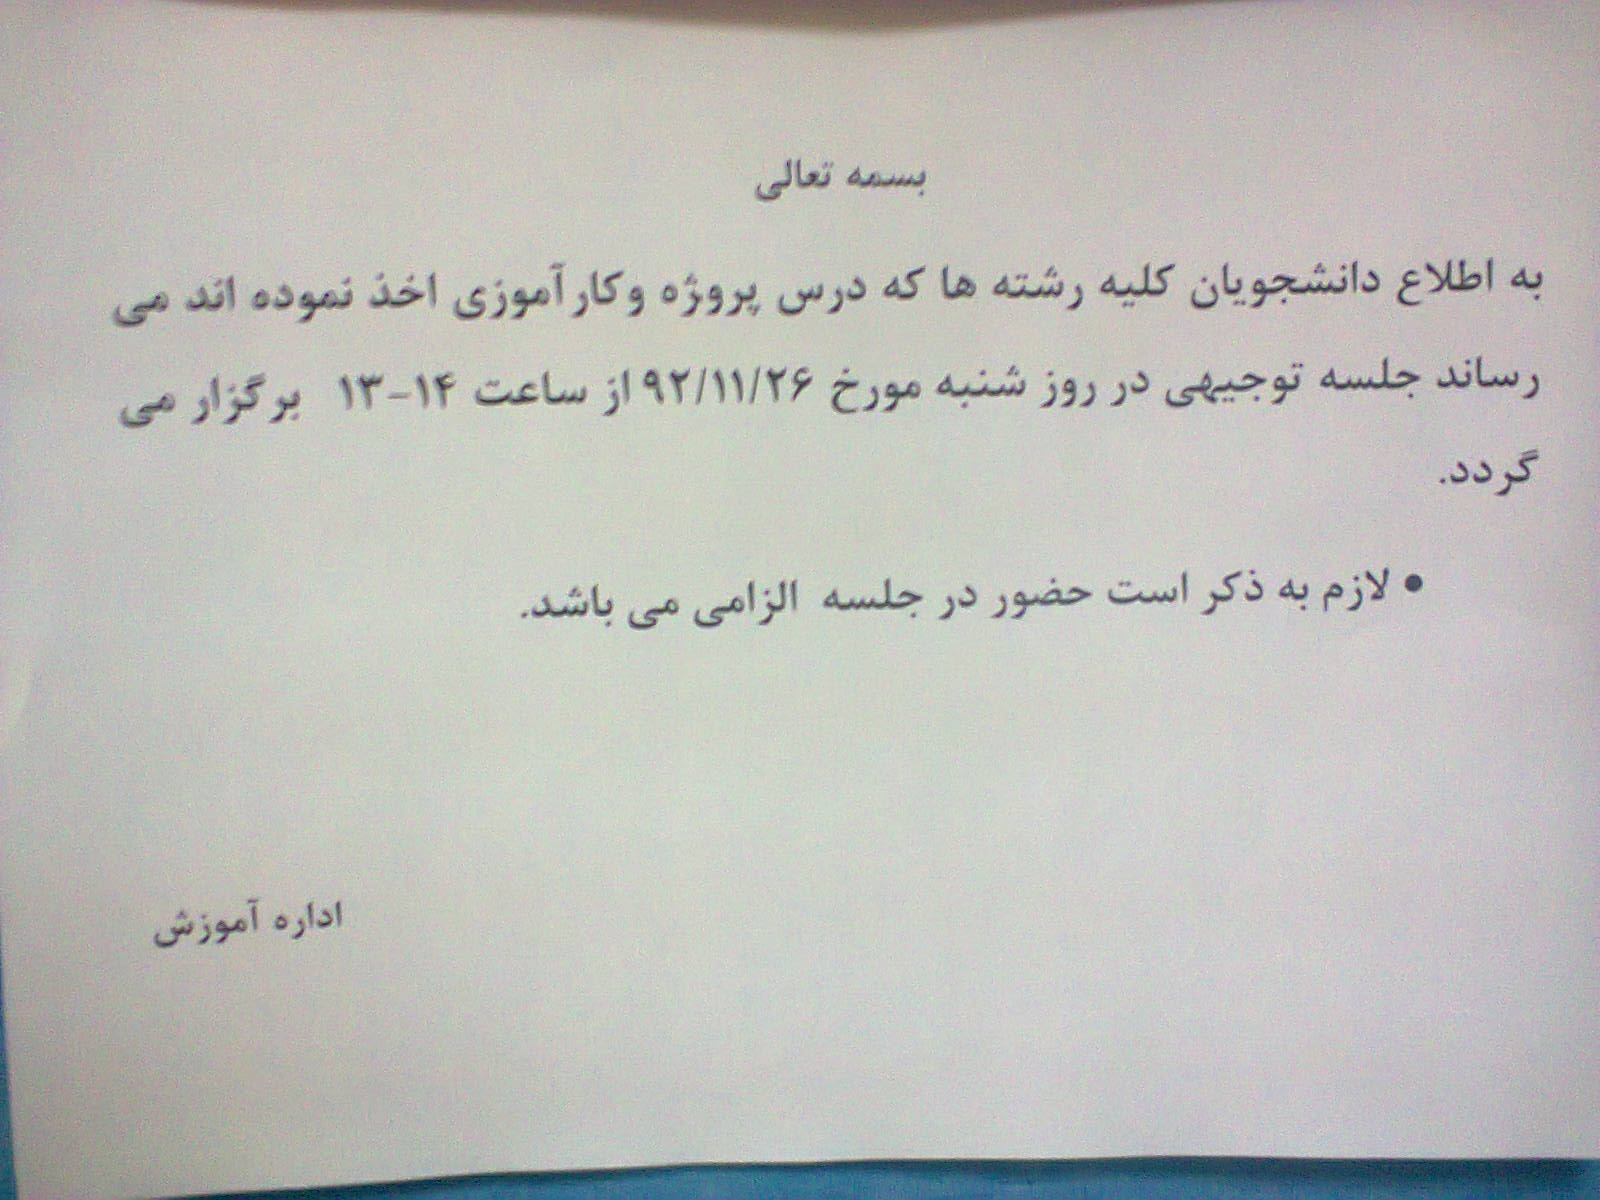 بسمه تعالی
به اطلاع دانشجویان کلیه رشته ها که درس پروژه وکارآموزی اخذ نموده اند می
رساند جلسه توجیهی در روز شنبه مورخ ۹۲/۱۱/۲۶ از ساعت ۱۴-۱۳ برگزار می
گردد.
• لازم به ذکر است حضور در جلسه الزامی می باشد.
اداره آموزش